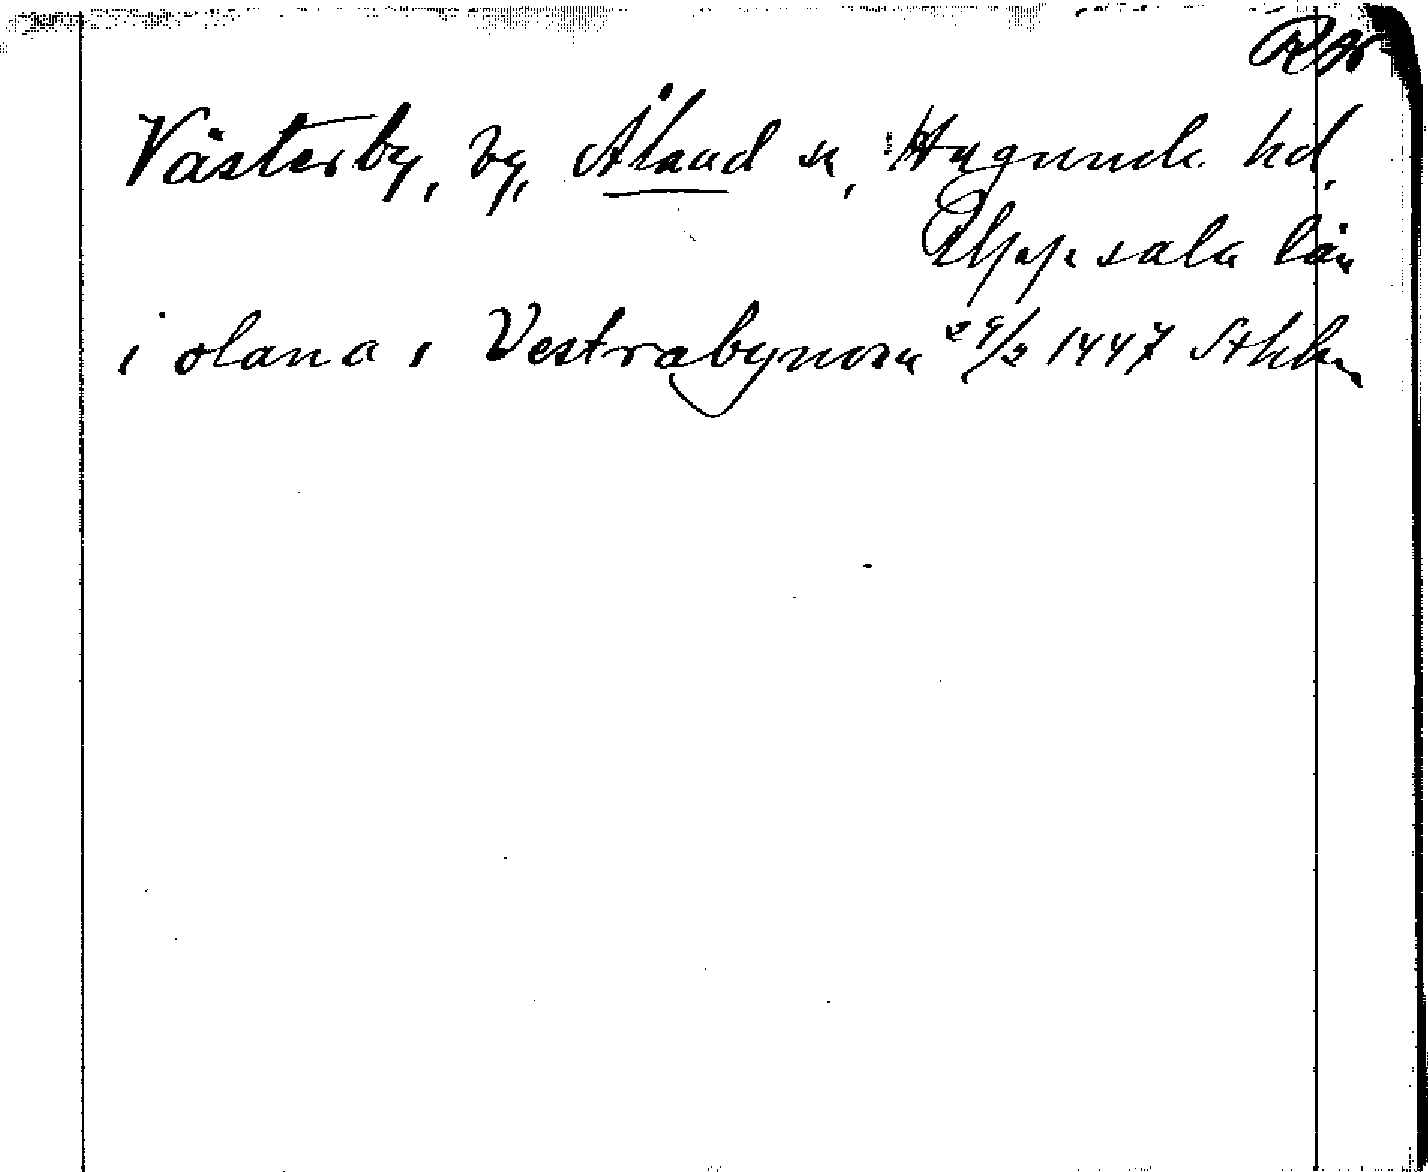 Västerby, by, Åland sn, Hagunda hd,
Uppsala län
i oland i Vestrabynom 29/2 1447 Sthlm